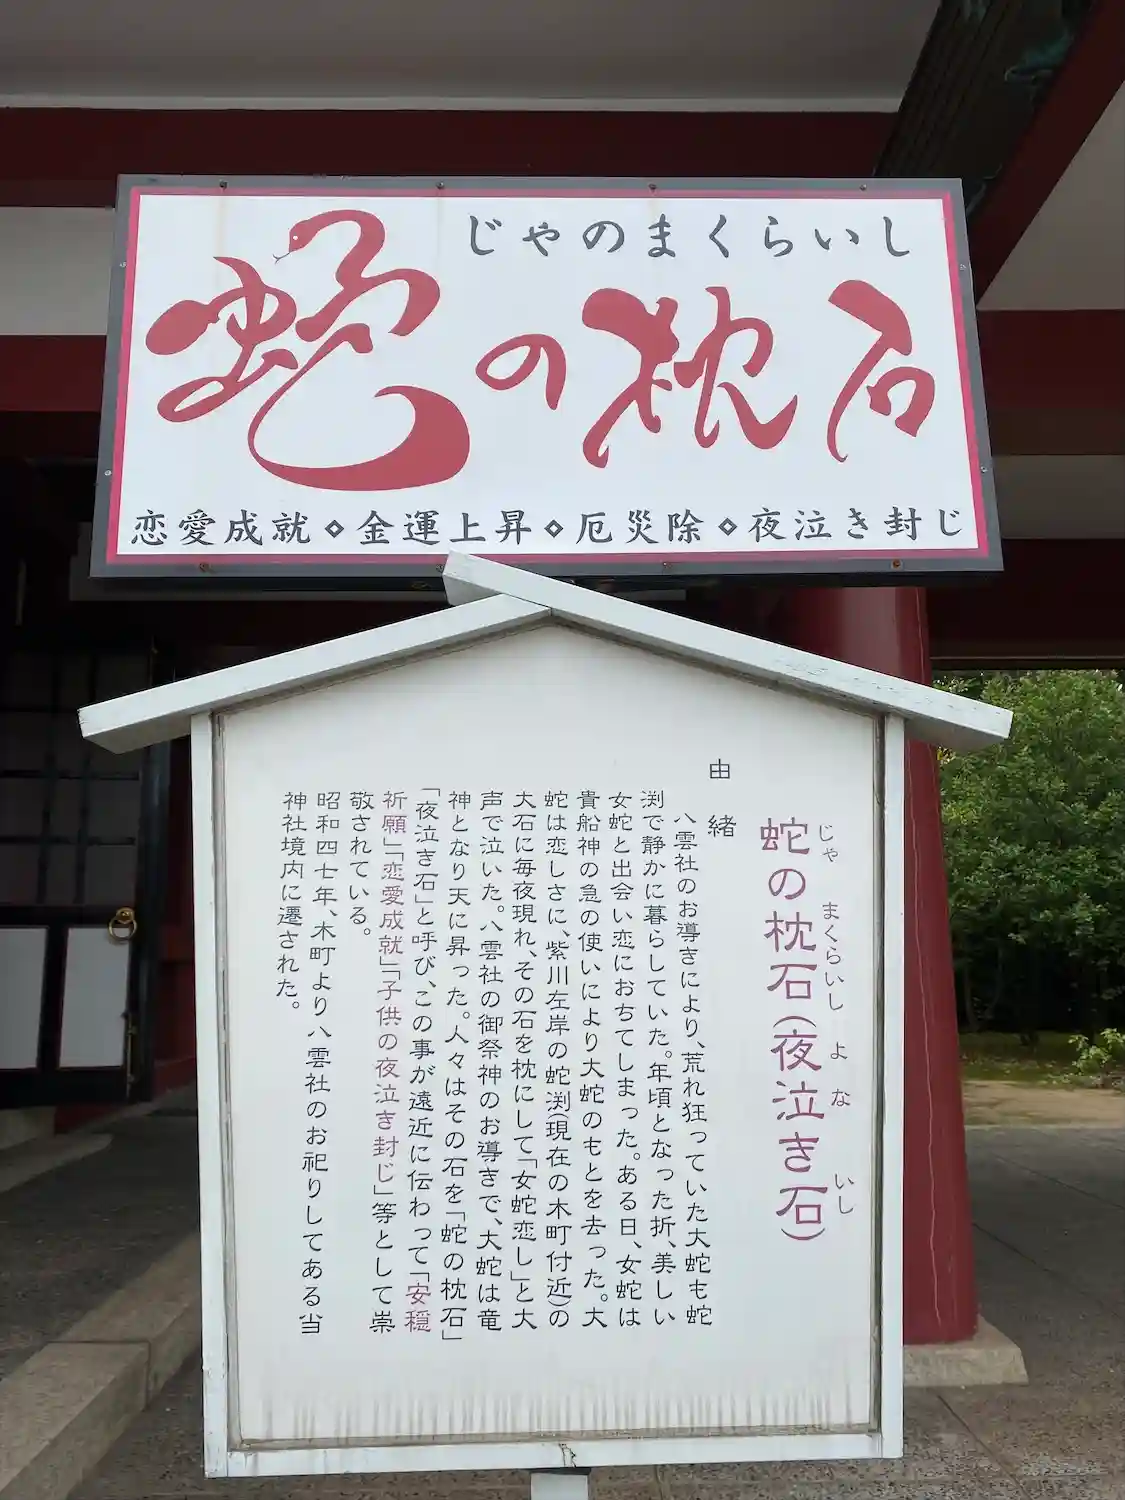 じゃのまくらいし
蛇の枕石
恋愛成就◇金運上昇◇厄災除◇夜泣き封じ
蛇の枕石(夜泣き石)
じゃ まくらいし よ な いし
由緒
八雲社のお導きにより、荒れ狂っていた大蛇も蛇
渕で静かに暮らしていた。年頃となった折、美しい
女蛇と出会い恋におちてしまった。ある日、女蛇は
貴船神の急の使いにより大蛇のもとを去った。大
蛇は恋しさに、紫川左岸の蛇渕(現在の木町付近)の
大石に毎夜現れ、その石を枕にして「女蛇恋し」と大
声で泣いた。八雲社の御祭神のお導きで、大蛇は竜
神となり天に昇った。人々はその石を「蛇の枕石」
「夜泣き石」と呼び、この事が遠近に伝わって「安穏
祈願」「恋愛成就」「子供の夜泣き封じ」等として崇
敬されている。
昭和四七年、木町より八雲社のお祀りしてある当
神社境内に遷された。